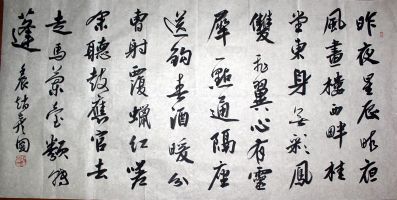 昨夜星辰昨夜
風畫樓西畔桂
堂東身無彩鳳
雙飛翼心有靈
犀一點通隔座
送鈎春酒暖分
曹射覆蠟紅嗟
余聽鼓應官去
走馬蘭台類轉
蓬